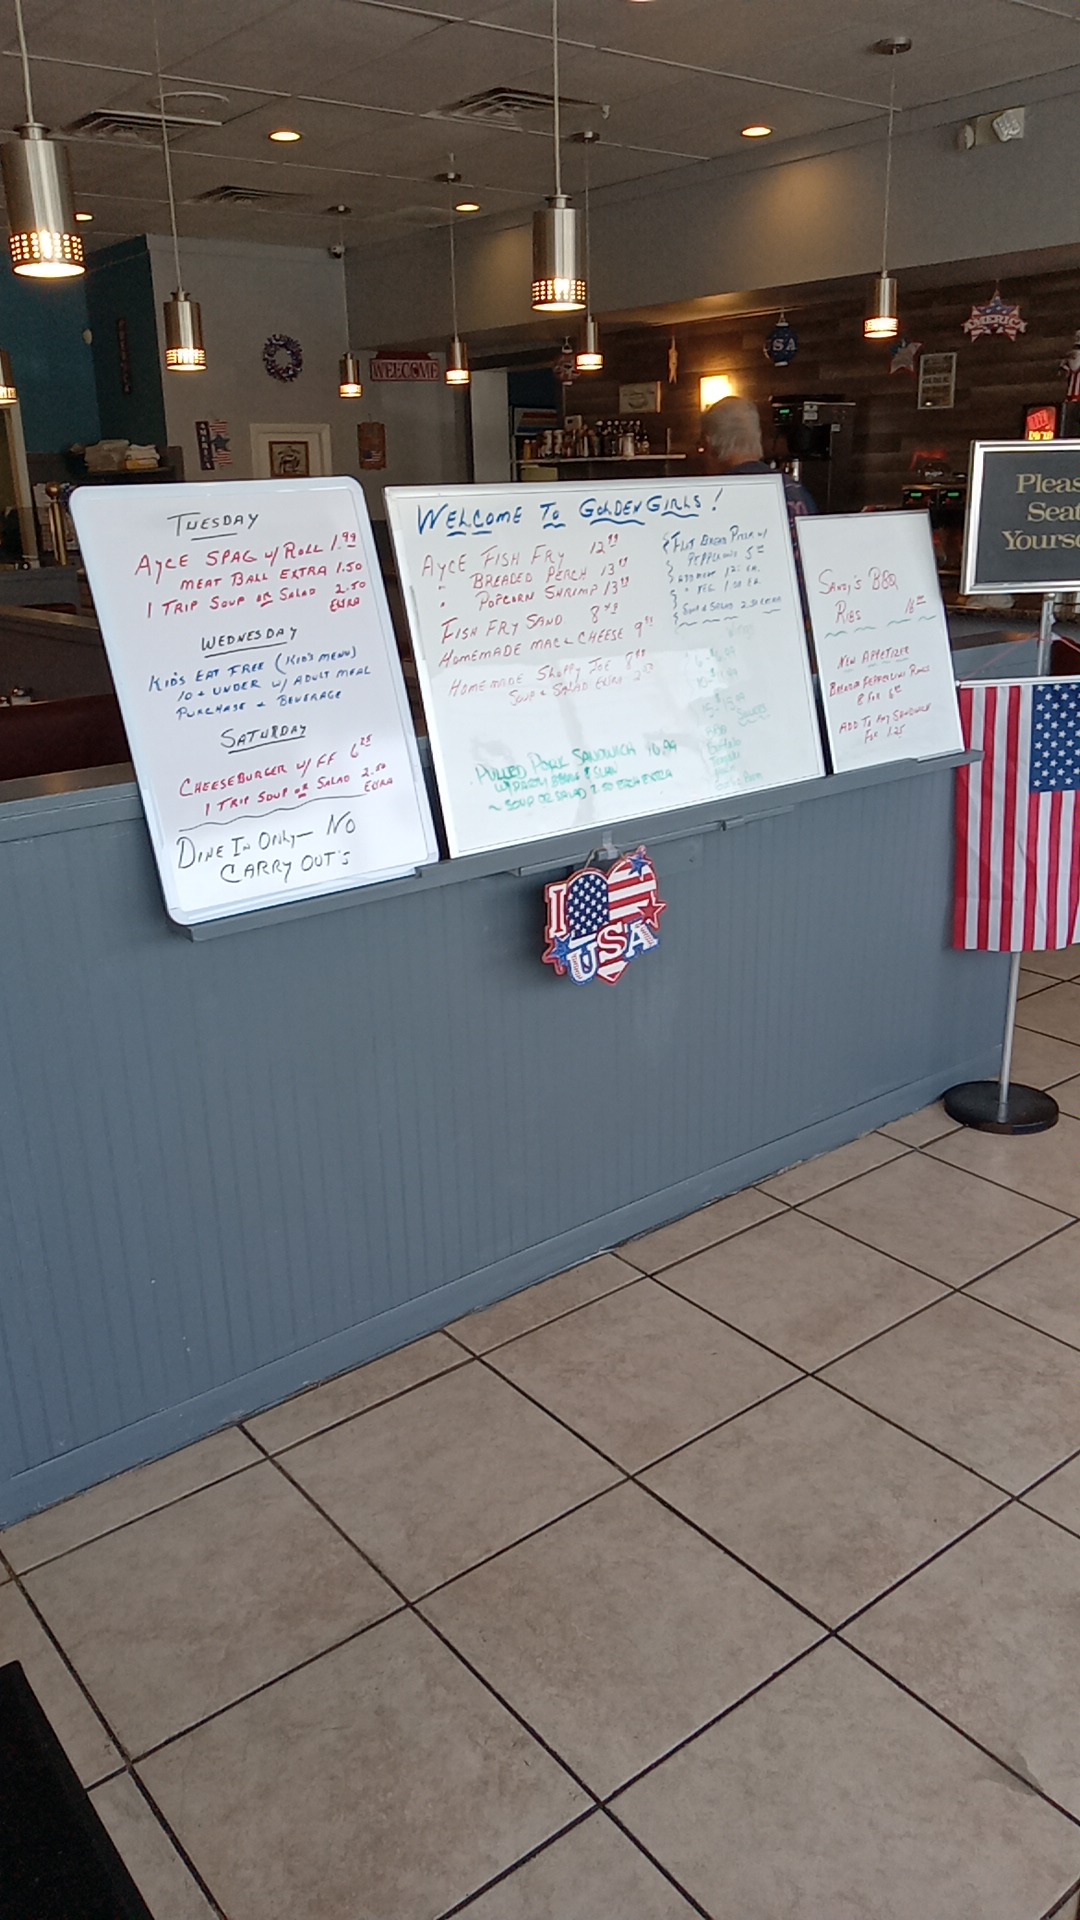 TUESDAY
AYCE SPAG w/ ROLL 1.99
MEAT BALL EXTRA 1.50
1 TRIP SOUP OR SALAD 2.50
EXTRA
WEDNESDAY
KID'S EAT FREE (KID'S MENU)
10 & UNDER W/ ADULT MEAL
PURCHASE & BEVERAGE
SATURDAY
CHEESEBURGER W/ FF 6
1 TRIP SOUP OR SALAD 2.50
EXTRA
DINE IN ONLY — NO
CARRY OUT'S
WELCOME TO GOLDEN GIRLS!
AYCE FISH FRY 12
" BREADED PERCH 13
" POPCORN SHRIMP 13
FISH FRY SAND 8
HOMEMADE MAC & CHEESE 9
HOMEMADE SLOPPY JOE 8
SOUP & SALAD EXTRA
PULLED PORK SANDWICH
& SLAW
~ SOUP OR SALAD 2.50 EACH EXTRA
FLAT BREAD PIZZA W/
PEPPERONI 5
VEG.
SOUP & SALAD 2.50 EXTRA
SANDY'S BBQ
RIBS
NEW APPETIZER
BREADED PEPPERONI
8 FOR
ADD TO ANY SANDWICH
FOR 1.25
Pleas
Seat
Yourse
WELCOME
AMERICA
AMERICA
SA
I
USA